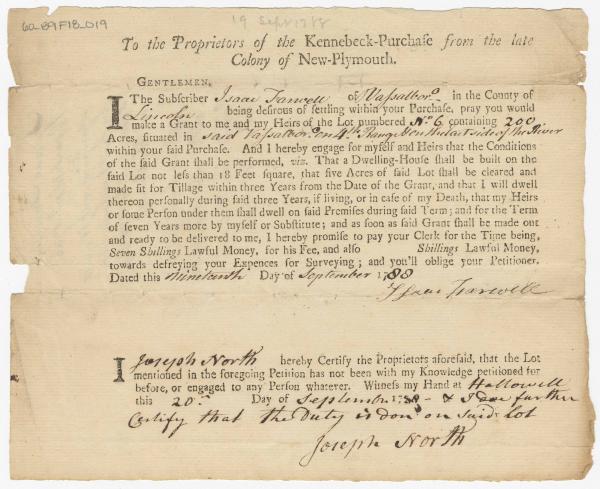 60_B9F18_019
19 Sept 1788
To the Proprietors of the Kennebeck-Purchaſe from the late
Colony of New-Plymouth.
GENTLEMEN,
I The Subſcriber Isaac Farwell of Vassalboro. in the County of
Lincoln being deſirous of ſettling within your Purchaſe, pray you would
make a Grant to me and my Heirs of the Lot numbered No. 6 containing 200
Acres, ſituated in said Vassalboro. on 4th. Range on the East side of the River
within your ſaid Purchaſe. And I hereby engage for myſelf and Heirs that the Conditions
of the ſaid Grant ſhall be performed, viz. That a Dwelling-Houſe ſhall be built on the
ſaid Lot not leſs than 18 Feet ſquare, that five Acres of ſaid Lot ſhall be cleared and
made fit for Tillage within three Years from the Date of the Grant, and that I will dwell
thereon perſonally during ſaid three Years, if living, or in caſe of my Death, that my Heirs
or ſome Perſon under them ſhall dwell on ſaid Premiſes during ſaid Term; and for the Term
of ſeven Years more by myſelf or Subſtitute; and as ſoon as ſaid Grant ſhall be made out
and ready to be delivered to me, I hereby promiſe to pay your Clerk for the Time being,
Seven Shillings Lawful Money, for his Fee, and alſo Shillings Lawful Money,
towards defreying your Expences for Surveying; and you'll oblige your Petitioner.
Dated this Nineteenth Day of September 1788
Isaac Farwell
I Joseph North hereby Certify the Proprietors aforeſaid, that the Lot
mentioned in the foregoing Petition has not been with my Knowledge petitioned for
before, or engaged to any Perſon whatever. Witneſs my Hand at Hallowell
this 20th. Day of September 1788 - & I doe further
Certify that the Duty is don on said Lot
Joseph North